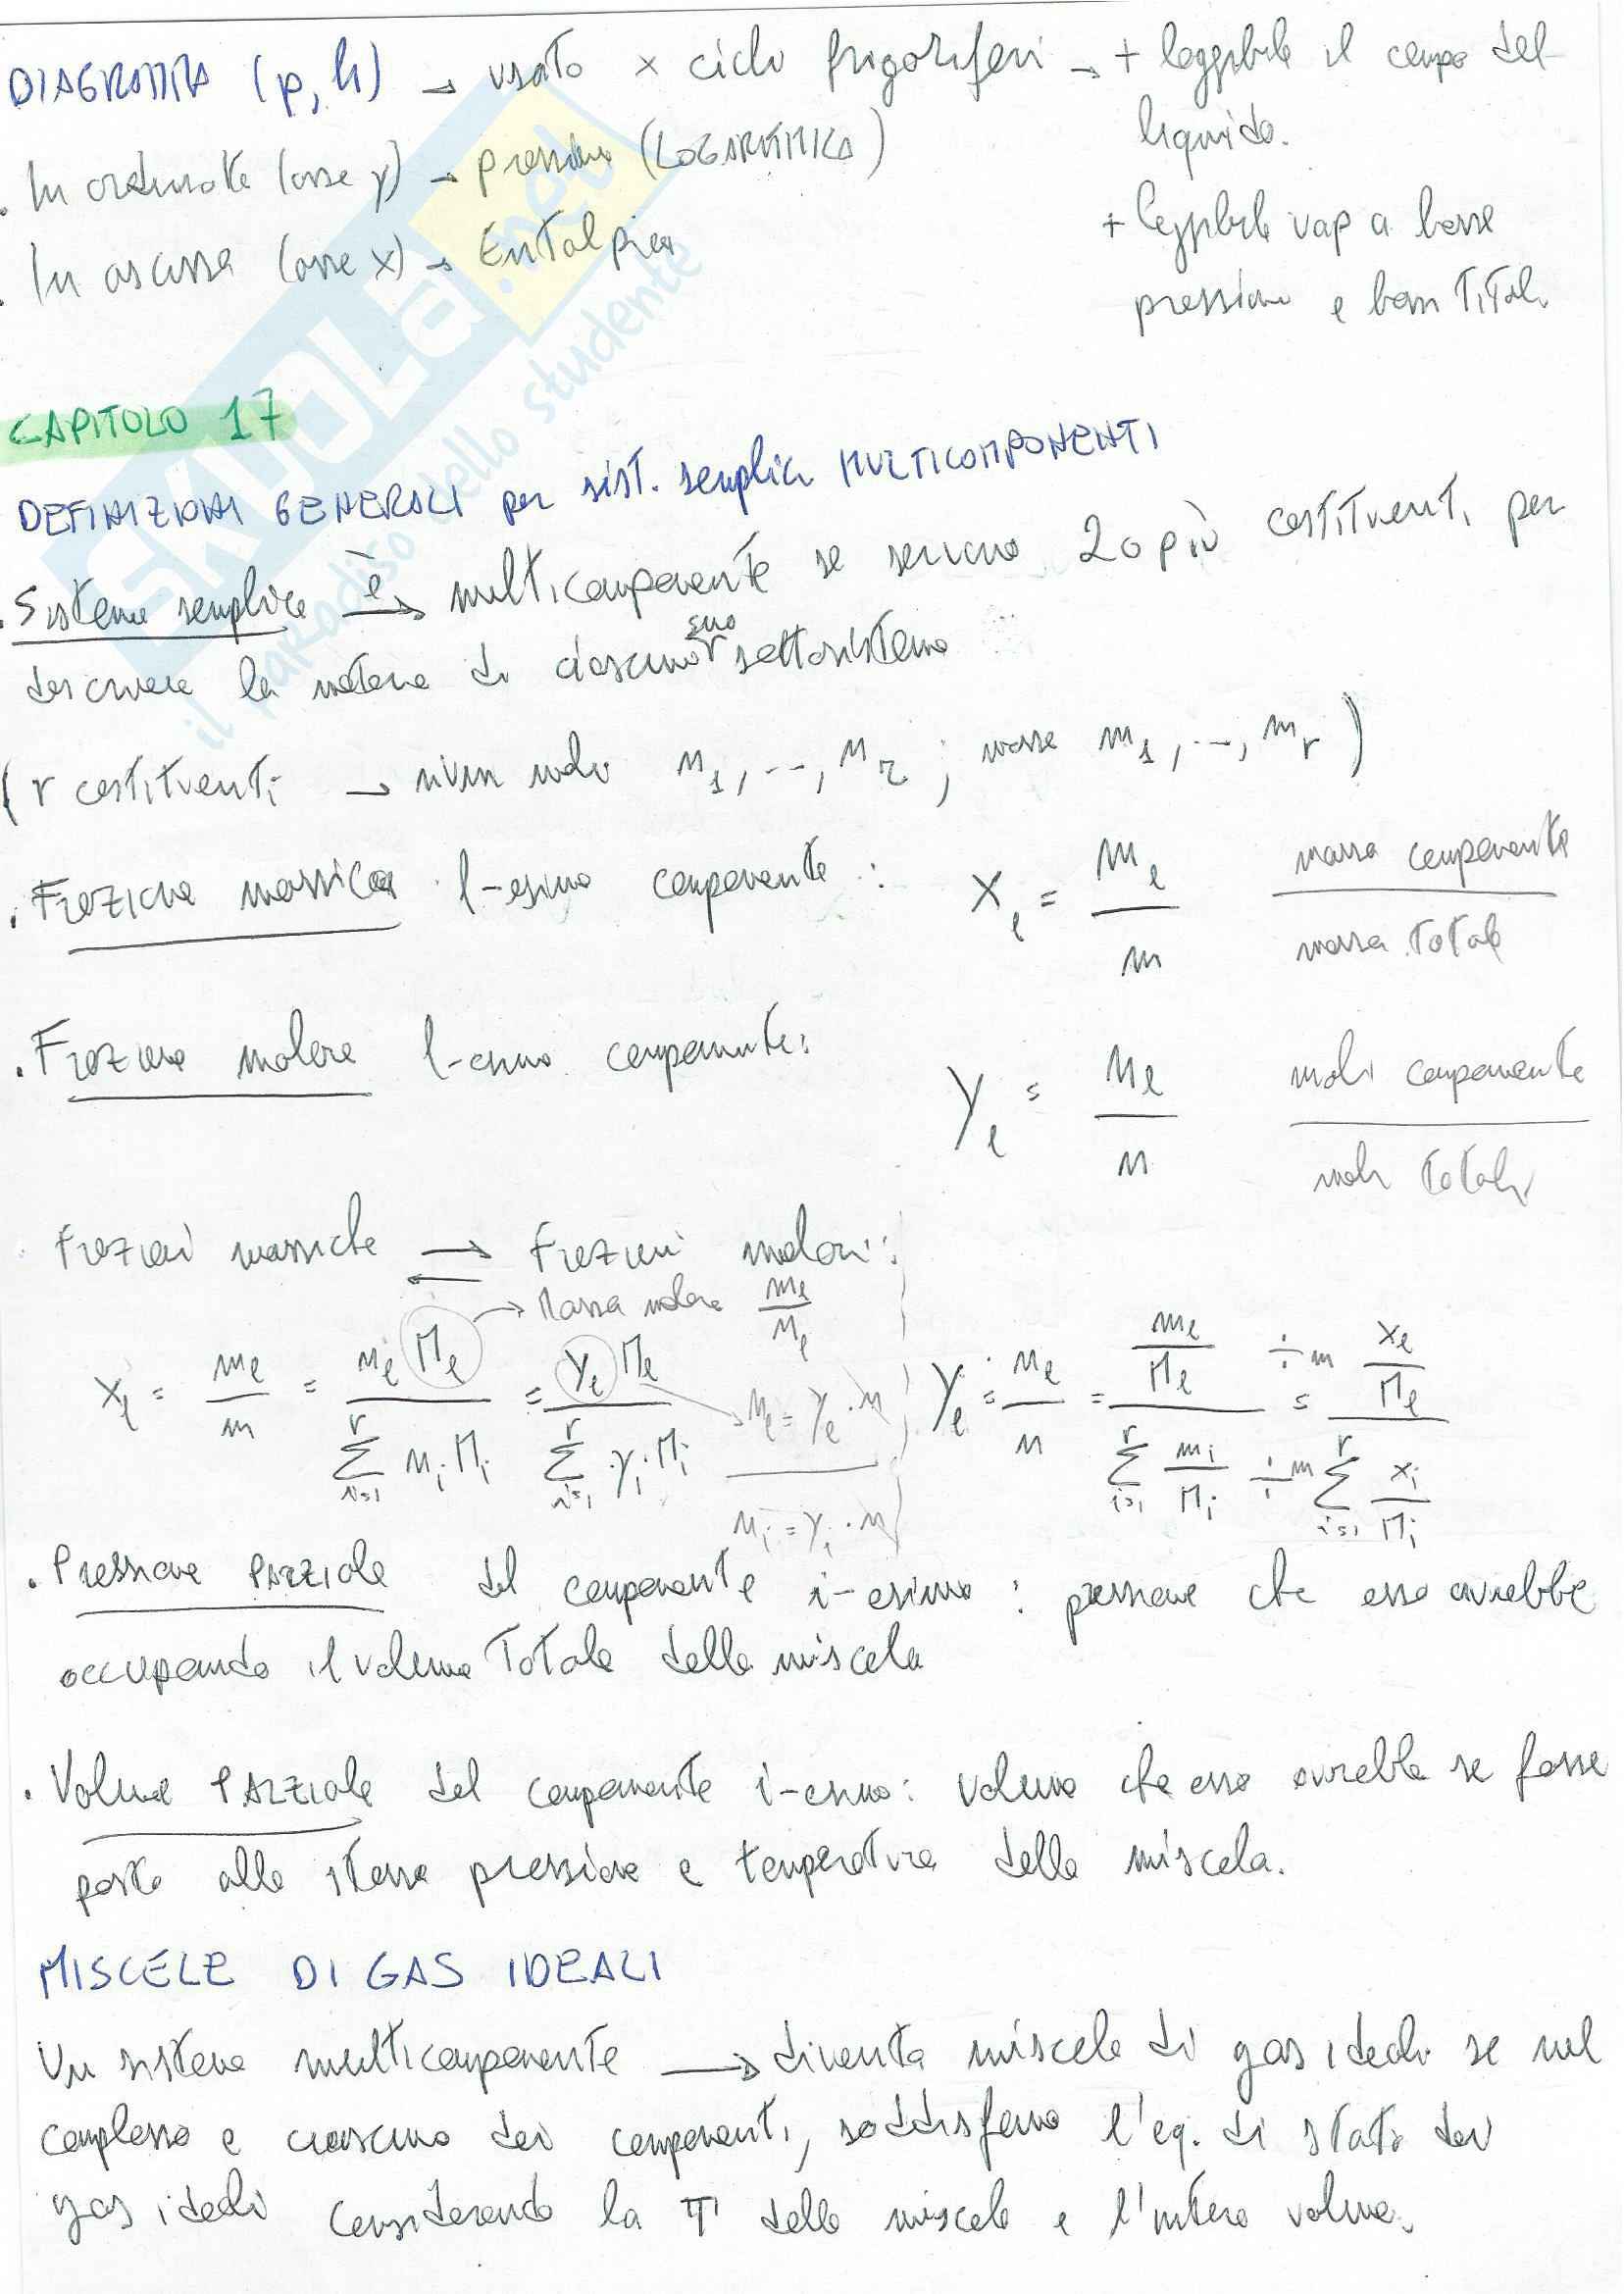 DIAGRAMMA (p,h) → usato × cicli frigoriferi → + leggibile il campo del liquido.
. In ordinate (asse y) → pressione (LOGARITMICA)
+ leggibile vap a basse pressioni e bassi titoli
. In ascissa (asse x) → Entalpia
CAPITOLO 17
DEFINIZIONI GENERALI per sist. semplici MULTICOMPONENTI
. Sistema semplice è → multicomponente se servono 2 o più costituenti per
descrivere la materia di ciascun suo sottosistema
(r costituenti → numm moli n₁, ..., nᵣ ; masse m₁, ..., mᵣ)
. Frazione massica l-esimo componente : xₗ = mₗ / m massa componente / massa totale
. Frazione molare l-esimo componente: yₗ = nₗ / n moli componente / moli totali
. Frazioni massiche ⇄ Frazioni molari:
→ Massa molare mₗ / nₗ
xₗ = mₗ / m = nₗ Mₗ / Σᵢ₌₁ʳ nᵢ Mᵢ = yₗ Mₗ / Σᵢ₌₁ʳ yᵢ Mᵢ → nₗ = yₗ · n / nᵢ = yᵢ · n
yₗ = nₗ / n = (mₗ / Mₗ) / (Σᵢ₌₁ʳ mᵢ / Mᵢ) ÷ m ÷ m = (xₗ / Mₗ) / (Σᵢ₌₁ʳ xᵢ / Mᵢ)
. Pressione PARZIALE del componente i-esimo : pressione che esso avrebbe
occupando il volume totale della miscela
. Volume PARZIALE del componente i-esimo: volume che esso avrebbe se fosse
posto alla stessa pressione e temperatura della miscela.
MISCELE DI GAS IDEALI
Un sistema multicomponente → diventa miscela di gas ideali se nel
complesso e ciascuno dei componenti, soddisfano l'eq. di stato dei
gas ideali considerando la T della miscela e l'intero volume.
SKUOLA.net
il paradiso dello studente